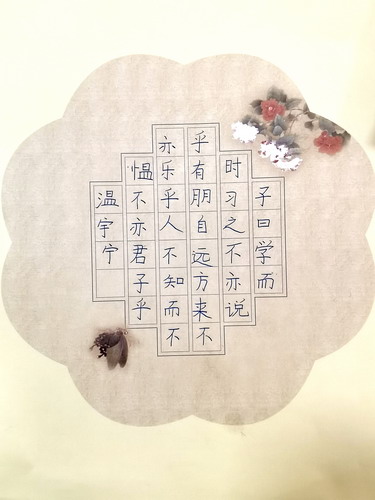 子曰学而
时习之不亦说
乎有朋自远方来不
亦乐乎人不知而不
愠不亦君子乎
温宇宁